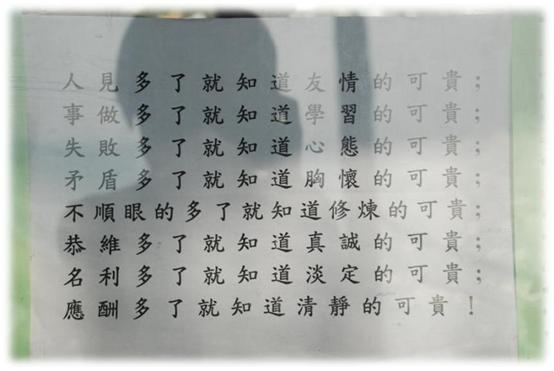 人見多了就知道友情的可貴；
事做多了就知道學習的可貴；
失敗多了就知道心態的可貴；
矛盾多了就知道胸懷的可貴；
不順眼的多了就知道修煉的可貴；
恭維多了就知道真誠的可貴；
名利多了就知道淡定的可貴；
應酬多了就知道清靜的可貴！